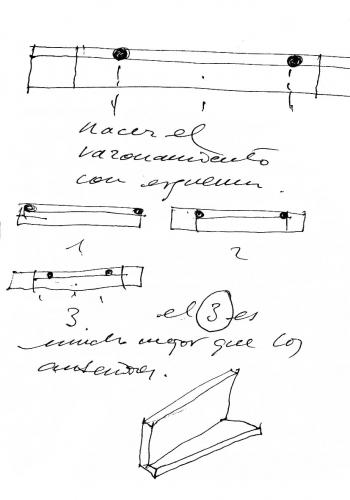 hacer el
razonamiento
con esquema.
1
2
3.
el 3 es
mucho mejor que los
anteriores.